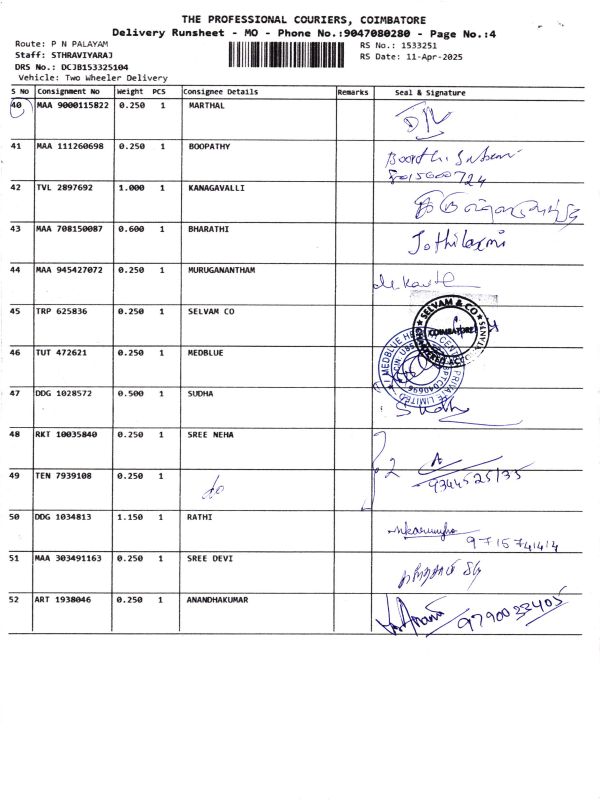 THE PROFESSIONAL COURIERS, COIMBATORE
Delivery Runsheet - MO - Phone No.:9047080280 - Page No.:4
Route: P N PALAYAM
RS No.: 1533251
Staff: STHRAVIYARAJ
RS Date: 11-Apr-2025
DRS No.: DCJB153325104
Vehicle: Two Wheeler Delivery
S No Consignment No Weight PCS Consignee Details Remarks Seal & Signature
40 MAA 9000115822 0.250 1 MARTHAL
41 MAA 111260698 0.250 1 BOOPATHY
8015600724
42 TVL 2897692 1.000 1 KANAGAVALLI
43 MAA 708150087 0.600 1 BHARATHI Jothilaxmi
44 MAA 945427072 0.250 1 MURUGANANTHAM
45 TRP 625836 0.250 1 SELVAM CO SELVAM & CO COIMBATORE
46 TUT 472621 0.250 1 MEDBLUE
47 DDG 1028572 0.500 1 SUDHA Sudha
48 RKT 10035840 0.250 1 SREE NEHA 2
49 TEN 7939108 0.250 1 do 9344525135
50 DDG 1034813 1.150 1 RATHI
9715741414
51 MAA 303491163 0.250 1 SREE DEVI
52 ART 1938046 0.250 1 ANANDHAKUMAR 9790033405